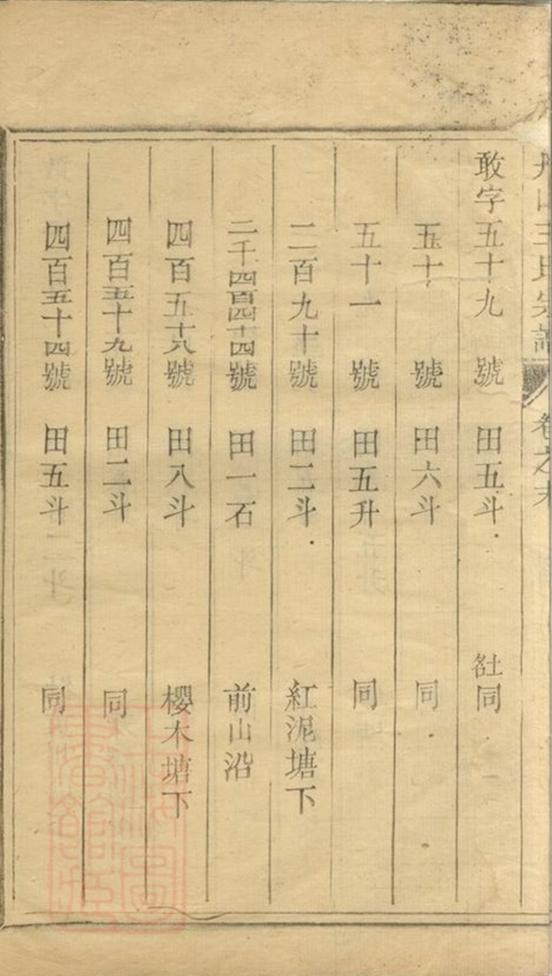 山王氏宗譜 卷之末
敢字五十九 號 田五斗 同
五十 號 田六斗 同
五十一 號 田五升 同
二百九十號 田二斗 紅泥塘下
二千四百四十四號 田一石 前山沿
四百五十八號 田八斗 櫻木塘下
四百五十九號 田二斗 同
四百五十四號 田五斗 同